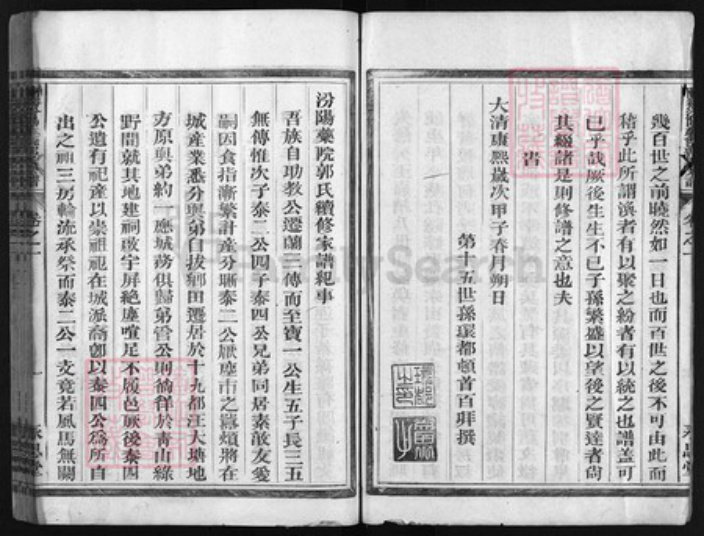 幾百世之前曉然如一日也而百世之後不可由此而
稽乎此所謂渙者有以聚之紛者有以統之也譜蓋可
已乎哉厥後生生不已子孫繁盛以望後之賢達者尚
其綴諸是則修譜之意也夫
大清康熙歲次甲子春月朔日
第十五世孫環都頓首百拜撰
汾陽藥院郭氏續修家譜紀事
吾族自助教公遷蘭三傳而至寶一公生五子長三五
無傳惟次子泰二公四子泰四公兄弟同居素敦友愛
嗣因食指漸繁計產分晰泰二公厭塵市之囂煩將在
城產業悉分與弟自拔鄉田遷居於十九都汪大塘地
方原與弟約一應城務俱歸弟管公則徜徉於青山綠
野間就其地建祠啟宇屏絶塵喧足不履邑厥後泰四
公遺有祀產以崇祖祀在城派裔卽以泰四公為所自
出之祖三房輪流承祭而泰二公一支竟若風馬無關
FamilySearch
卷之一